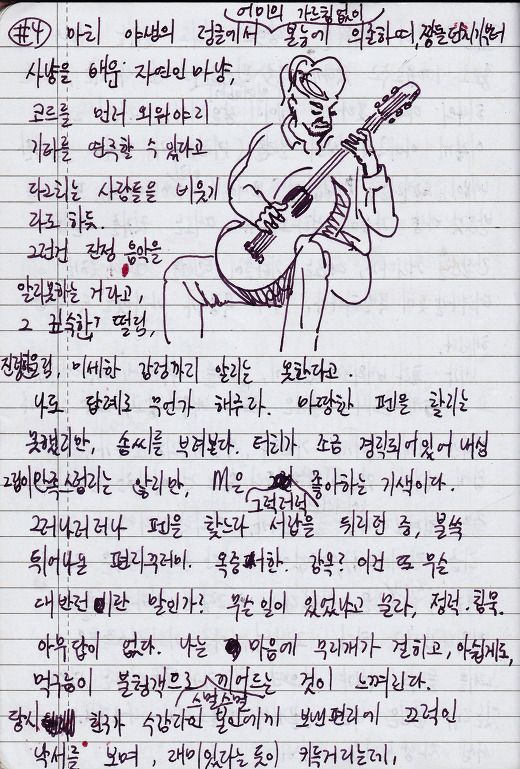 #4 마치 야생의 정글에서 어미의 가르침없이 본능에 의존하며,
사냥을 배운 자연인 마냥,
코드를 먼저 외워야지
기타를 연주할 수 있다고
다그치는 사람들을 비웃기
라도 하듯.
그런건 진정 음악을
알지못하는 거라고,
그 순수한 떨림,
진정한 울림, 미세한 감정까지 알지는 못한다고.
나도 답례로 무언가 해주자. 마땅한 펜을 찾지는
못했지만, 솜씨를 부려본다. 터치가 조금 경직되어있어 내심
그림이 만족스럽지는 않지만, M은 그럭저럭 좋아하는 기색이다.
그러나저러나 펜을 찾느라 서랍을 뒤지던 중, 불쑥
튀어나온 편지꾸러미. 옥중서한. 감옥? 이건 또 무슨
대반전이란 말인가? 무슨 일이 있었냐고 물자, 정적. 침묵.
아무 답이 없다. 나는 마음에 무지개가 걷히고, 아쉽게도,
먹구름이 불청객으로 스멀스멀 끼어드는 것이 느껴진다.
당시 친구가 수감자인 본인에게 보낸 편지에 끄적인
낙서를 보며, 재미있다는 듯이 키득거리는데,